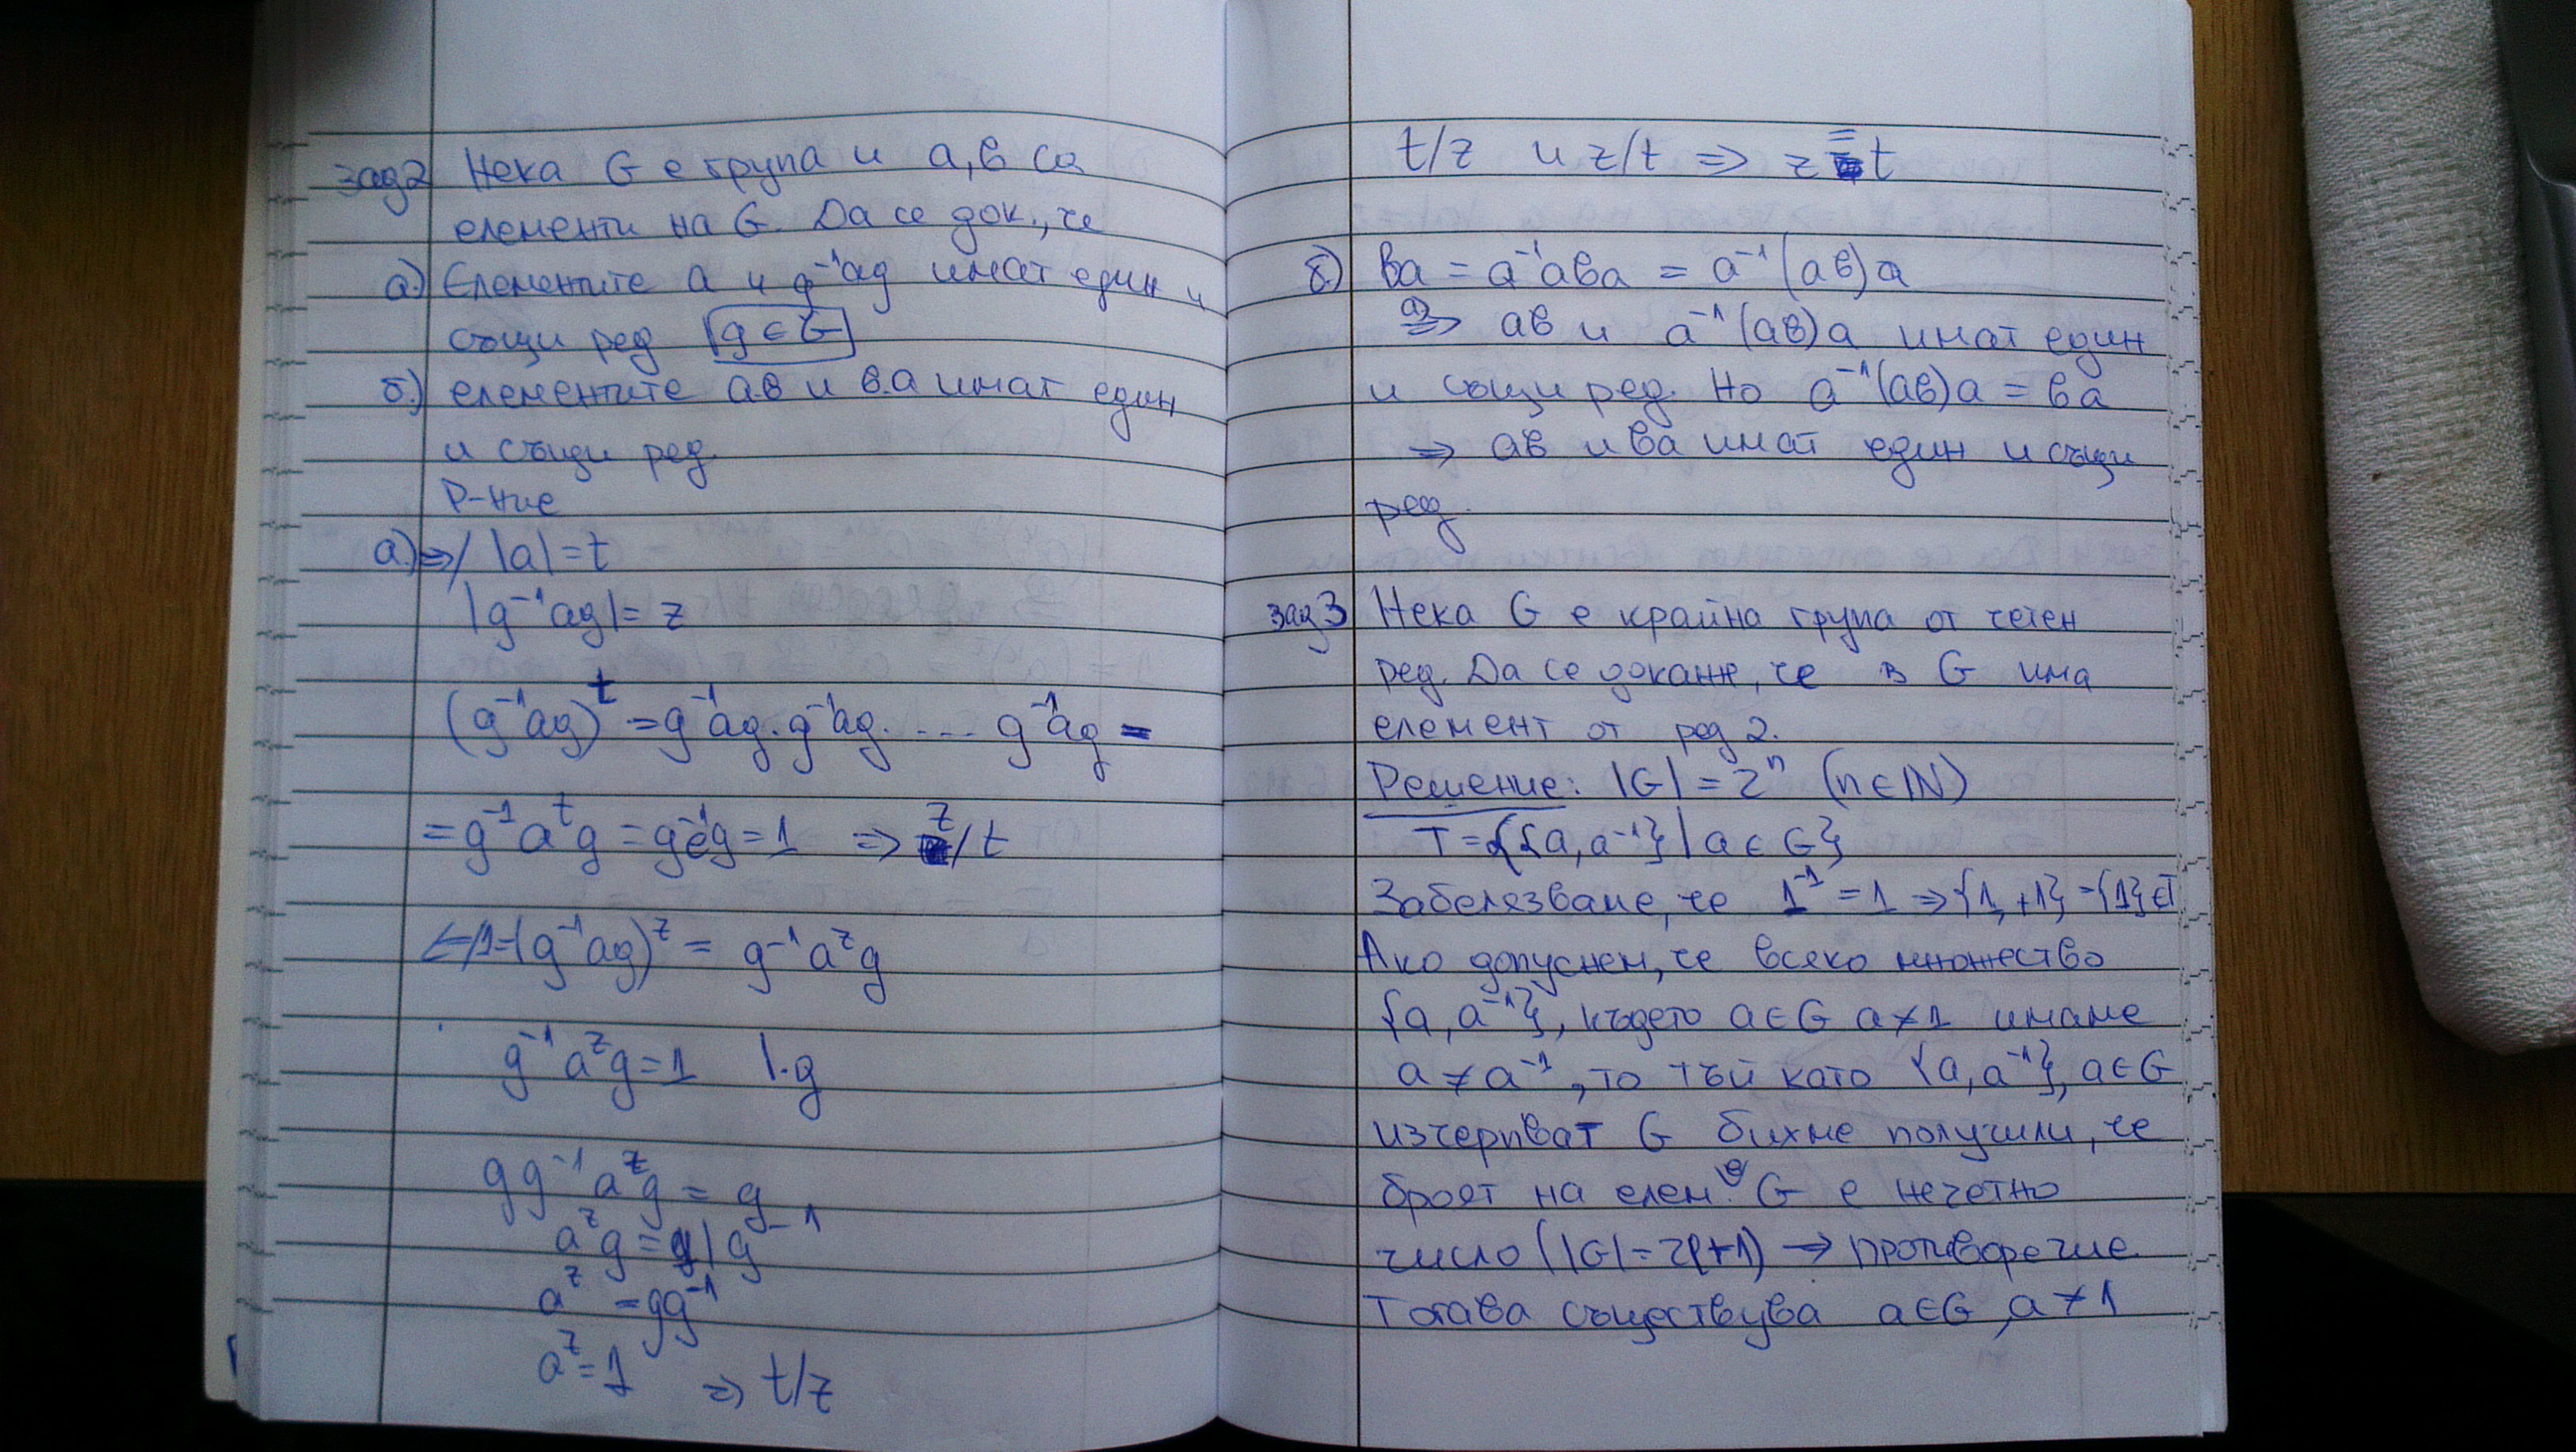 зад2 Нека G е група и а, в са
елементи на G. Да се док., че
а.) Елементите а и g⁻¹ag имат един и
същи ред g ∈ G
б.) елементите а.в и в.а имат един
и същи ред.
Р-ние
а.) ⇒/ |a| = t
|g⁻¹ag| = z
(g⁻¹ag)ᵗ = g⁻¹ag.g⁻¹ag. .... g⁻¹ag =
= g⁻¹aᵗg = g⁻¹eg = 1 ⇒ z/t
⇐/1=(g⁻¹ag)ᶻ = g⁻¹aᶻg
g⁻¹aᶻg = 1 |.g
gg⁻¹aᶻg = g
aᶻg = g | g⁻¹
aᶻ = gg⁻¹
aᶻ = 1 ⇒ t/z
t/z и z/t ⇒ z = t
б.) ва = а⁻¹ава = а⁻¹(ав)а
а) ⇒ ав и а⁻¹(ав)а имат един
и същи ред. Но а⁻¹(ав)а = ва
⇒ ав и ва имат един и същи
ред.
зад3 Нека G е крайна група от четен
ред. Да се докаже, че в G има
елемент от ред 2.
Решение: |G| = 2ⁿ (n ∈ ℕ)
T = {{a, a⁻¹} | a ∈ G}
Забелязваме, че 1⁻¹ = 1 ⇒ {1, +1} = {1} ∈ T
Ако допуснем, че всяко множество
{a, a⁻¹}, където a ∈ G a ≠ 1 имаме
a ≠ a⁻¹, то тъй като {a, a⁻¹}, a ∈ G
изчерпват G бихме получили, че
броят на елем. в G е нечетно
число (|G| = 2l+1) → противоречие
Тогава съществува a ∈ G, a ≠ 1